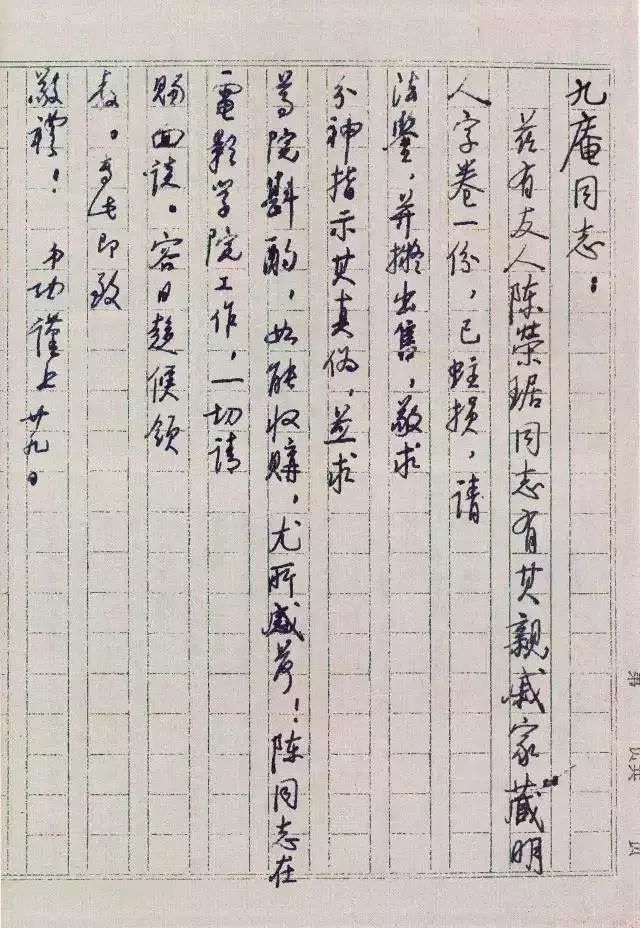 九庵同志：
兹有友人陈荣琚同志有其親戚家藏明
人字卷一份，已蛀损，请
法鉴，并擬出售，敬求
分神指示其真偽，並求
尊院斟酌，如能收購，尤所感荷！陈同志在
電影学院工作，一切请
賜面谈。容日趋候领
教。专此即致
敬礼！ 启功谨上 廿九日